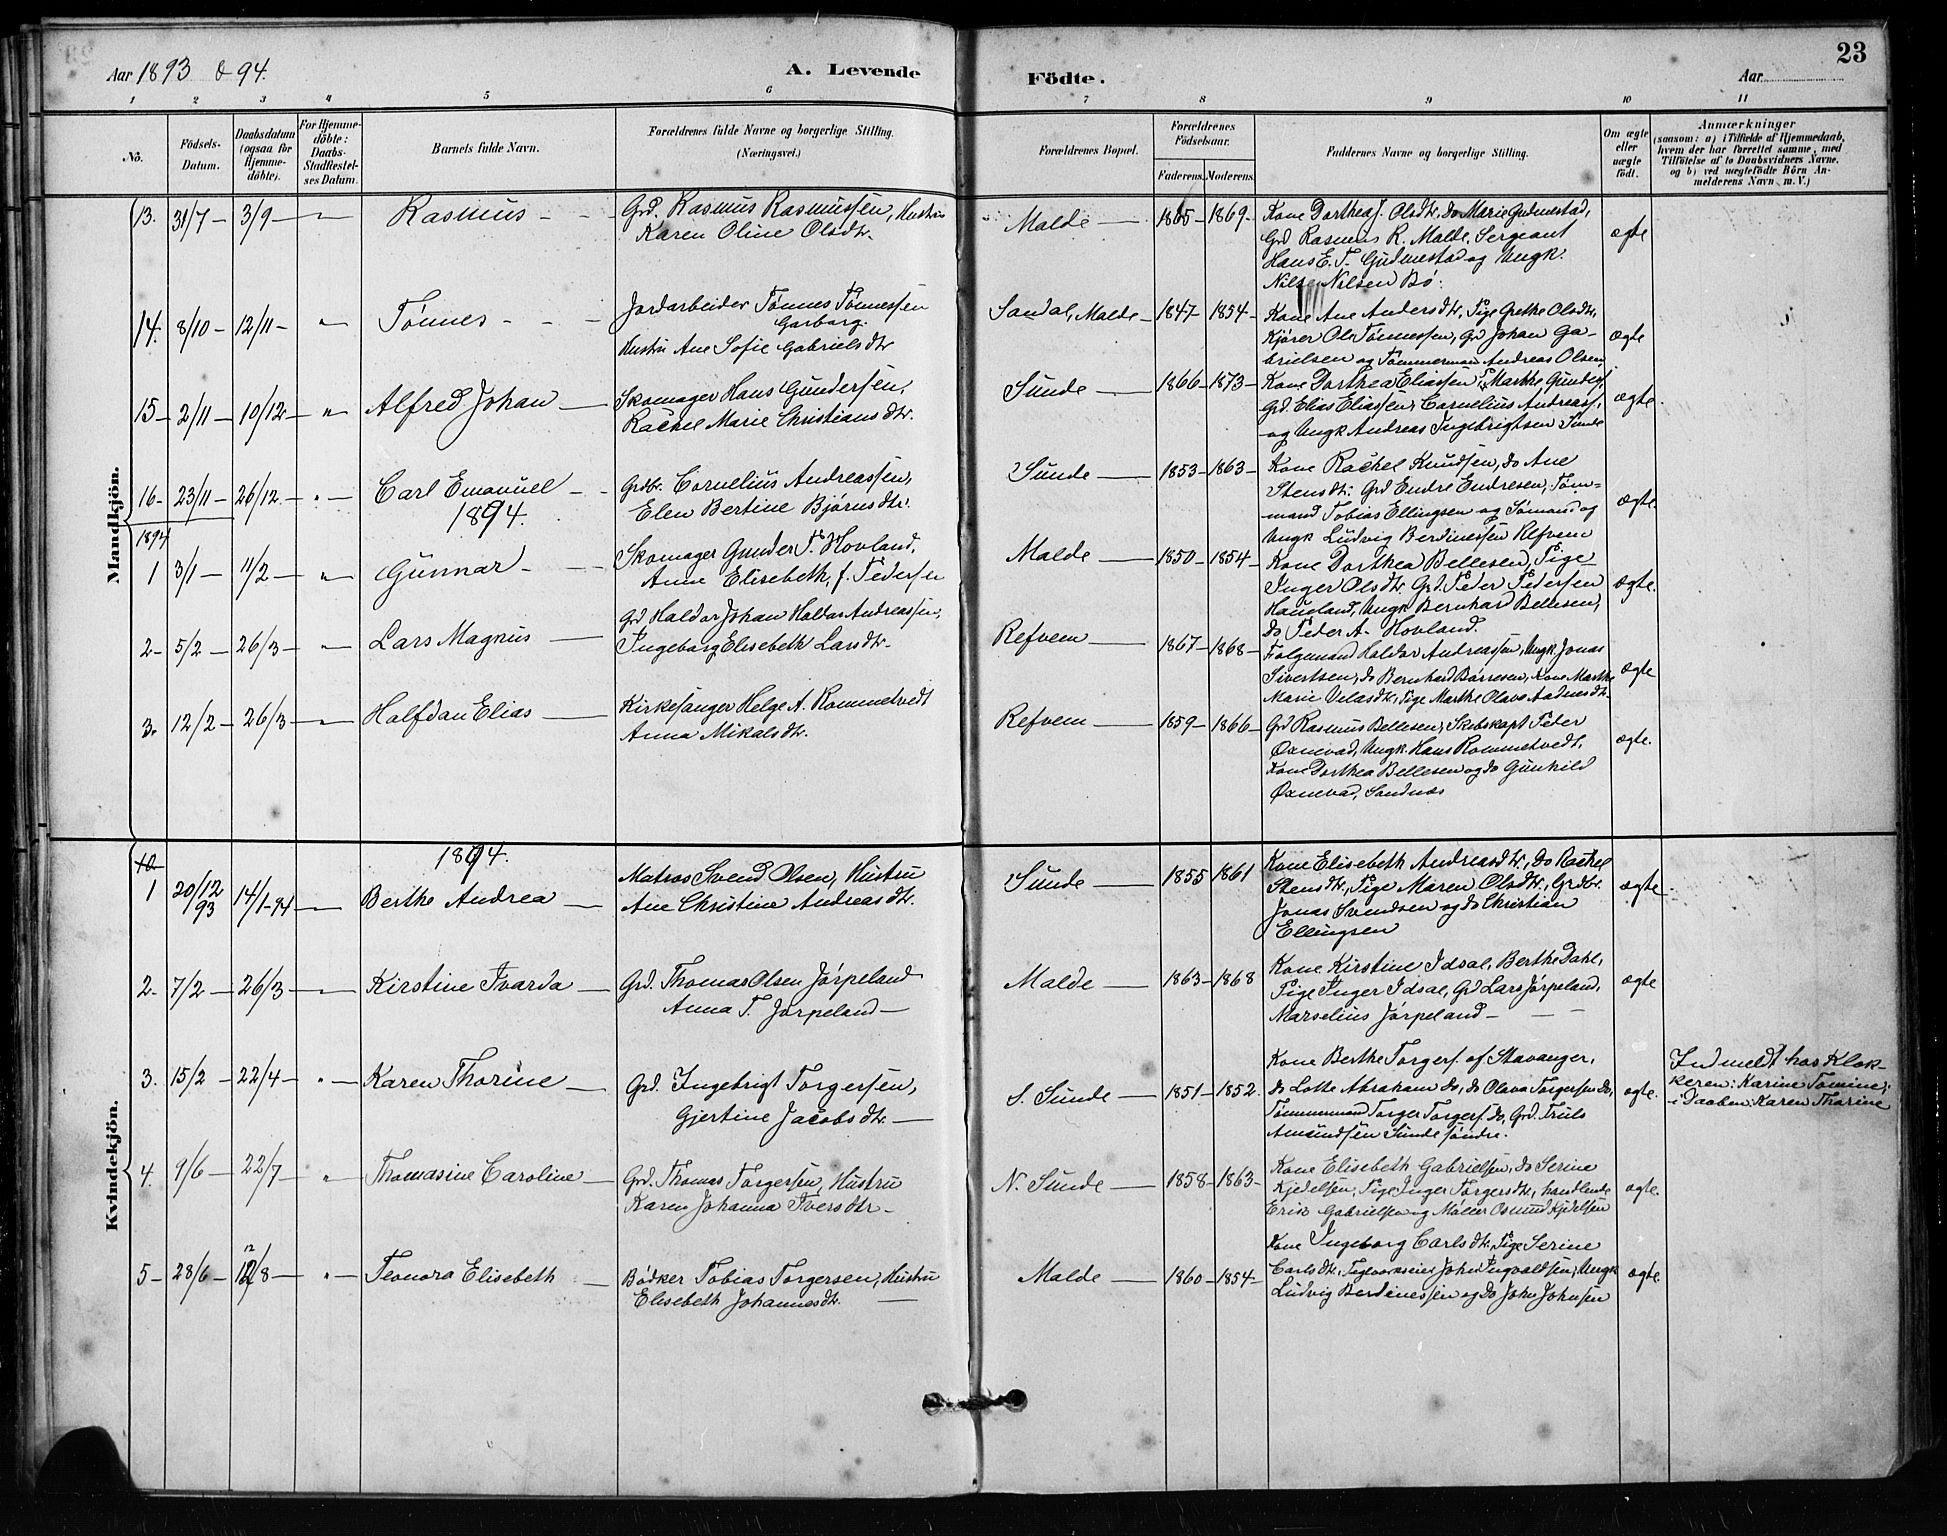 23
Aar 1893 & 94.
A. Levende
Födte.
Aar
1 2 3 4 5 6 7 8 9 10 11
No.
Födsels-
Datum.
Daabsdatum
(ogsaa for
Hjemme-
döbte).
For Hjemme-
döbte:
Daabs-
Stadfæstel-
ses Datum.
Barnets fulde Navn.
Forældrenes fulde Navne og borgerlige Stilling.
(Næringsvei.)
Forældrenes Bopæl.
Forældrenes
Födselsaar.
Faderens. Moderens.
Faddernes Navne og borgerlige Stilling.
Om ægte
eller
uægte
födt.
Anmærkninger
(saasom: a) i Tilfælde af Hjemmedaab,
hvem der har forrettet samme, med
Tilföielse af to Daabsvidners Navne,
og b) ved uægtefödte Börn An-
melderens Navn m. V.)
Mandkjön.
13. 31/7 - 3/9 - " Rasmus - -
Grd. Rasmus Rasmussen, Hustru
Karen Oline Olsdtr.
Malde - 1865 - 1869 -
Kone Dorthea J. Olsdtr, do Marie Gudmestad,
Grd Rasmus R. Malde, Sergeant
Hans E. T. Gudmestad og Ungk.
Nils Nilsen Bø.
ægte
14. 8/10 - 12/11 - " Tønnes - - -
Jordarbeider Tønnes Tønnessen
Garborg.
Hustru Ane Sofie Gabrielsdtr
Sandal, Malde - 1847 - 1854 -
Kone Ane Andersdtr, Pige Grethe Olsdtr,
Kjører Ole Tønnessen, Grd Johan Ga-
brielsen og Tømmermand Andreas Olsen
ægte
15 - 2/11 - 10/12 - " Alfred Johan -
Skomager Hans Gundersen,
Rachel Marie Christiansdtr.
Sunde - 1866 - 1873 -
Kone Dorthea Eliassen, P. Marthe Gunders.,
Grd. Elias Eliassen, Cornelius Andreass.,
og Ungk Andreas Ingebrigtsen Sunde
ægte.
16 - 23/11 - 26/12 - " - Carl Emanuel - -
Grdbr. Cornelius Andreassen,
Elen Bertine Bjørnsdtr.
Sunde - 1853 - 1863 -
Kone Rachel Knudsen, do Ane
Stensdtr. Grd Endre Endresen, Tøm-
mand Tobias Ellingsen og Sømand og
Ungk Ludvig Berdinessen Refvem
ægte.
1894.
1894
1 3/1 - 11/2 - " Gunnar - - -
Skomager Gunder P. Hovland,
Anne Elisabeth, f. Pedersen
Malde - 1850 - 1854 -
Kone Dorthea Bellesen, Pige
Inger Olsdtr Grd. Peder Pedersen
Haueland, Ungk Bernhard Bellesen,
do Peder A. Hovland.
ægte.
2 - 5/2 - 26/3 - " Lars Magnus -
Grd Haldor Johan Haldor Andreassen,
Ingeborg Elisebeth Larsdtr.
Refvem - 1867 - 1868 -
Folgemand Haldor Andreassen, Ungk Jonas
Sivertsen, do Bernhard Børresen, Kone Marthe
Marie Velasdtr, Pige Marthe Olava Aadnesdtr
ægte
3. 12/2 - 26/3 - " Halfdan Elias -
Kirkesanger Helge A. Rommetvedt
Anna Mikalsdtr.
Refvem - 1859 - 1866 -
Grd Rasmus Bellesen, Skibskapt Peter
Oxnevad, Ungk. Hans Rommetvedt,
Kone Dorthea Bellesen og do Gunhild
Øxnevad, Sandnæs
ægte.
Kvindekjön.
1894.
10
1 20/12 93 14/1-94 - Berthe Andrea -
Matros Svend Olsen, Hustru
Ane Christine Andreasdtr.
Sunde - 1855 1861
Kone Elisebeth Andreasdtr, do Rachel
Stensdtr, Pige Maren Olsdtr, Grdbr.
Jonas Svendsen og do Christian
Ellingsen
ægte -
2. 7/2 - 26/3 - Kirstine Ivarda -
Grd. Thomas Olsen Jørpeland
Anna T. Jørpeland -
Malde - 1863 - 1868
Kone Kirstine Idsal, Berthe Dahl,
Pige Inger Idsal, Grd Lars Jørpeland,
Marselius Jørpeland - - -
ægte
3. 15/2 - 22/4 - " - Karen Thorine -
Grd. Ingebrigt Torgersen,
Gjertine Jacobsdtr. -
S. Sunde - 1851 - 1852.
Kone Berthe Torgers. af Stavanger,
do Lotte Abraham do, do Olava Torgersen do,
Tømmermand Torger Torgers. do, Grd. Truls
Amundsen Sunde søndre.
ægte.
Indmeldt hos Klok-
keren: Karine Tomine;
i Daaben: Karen Thorine
4. 9/6 - 22/7 " Thomasine Caroline -
Grd. Thomas Torgersen, Hustru
Karen Johanna Iversdtr -
N. Sunde - 1858 - 1863 -
Kone Elisebeth Gabrielsen, do Serine
Kjedelsen, Pige Inger Torgersdtr, handlende
Erik Gabrielsen og Møller Osmund Kjedelsen
ægte.
5 - 28/6 - 12/8 - " - Teonora Elisebeth -
12
Bødker Tobias Torgersen, Hustru
Elisebeth Johannesdtr. -
Malde - 1860 - 1854 -
Kone Ingeborg Carlsdtr, Pige Serine
Carlsdtr, Teglværkseier John Ingvaldsen, Ungk
Ludvig Berdinessen og do John Johnsen
ægte